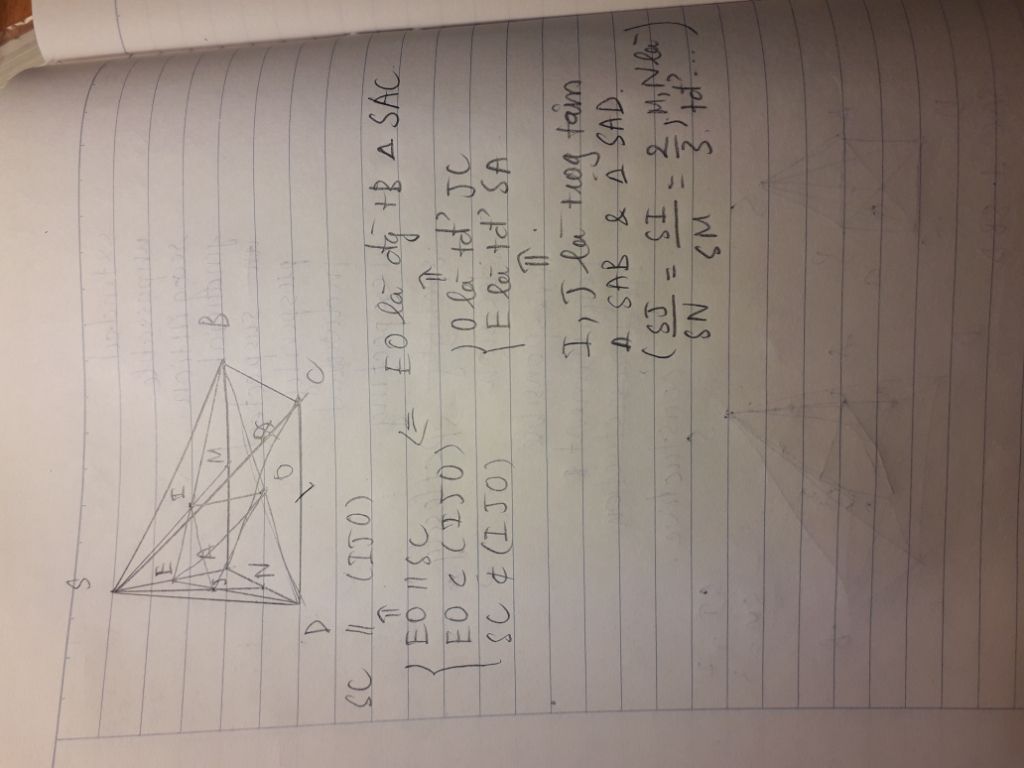 S
E
I
B
A
M
J
N
O
Q
C
D
SC // (IJO)
⇑
{ EO // SC <= EO là đg̀ tB Δ SAC
EO ⊂ (IJO)
SC ⊄ (IJO)
⇑
{ O là tđ' JC
E là tđ' SA
⇑
I, J là trọg tâm
Δ SAB & Δ SAD.
(SJ/SN = SI/SM = 2/3, M,N là
tđ'...)